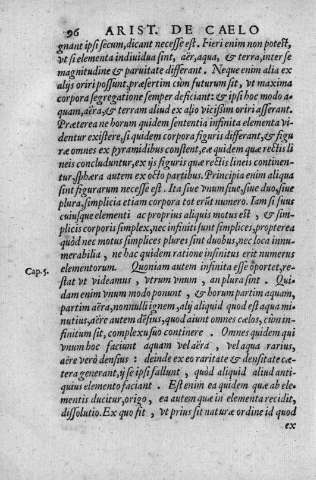 96 ARIST. DE CAELO
gnant ipsi secum, dicant necesse est. Fieri enim non potest,
vt si elementa indiuidua sint, aër, aqua, & terra, inter se
magnitudine & paruitate differant. Neque enim alia ex
alijs oriri possunt, præsertim cùm futurum sit, vt maxima
corpora segregatione semper deficiant: & ipsi hoc modo a-
quam, aëra, & terram aliud ex alio vicissim oriri asserant.
Præterea ne horum quidem sententia infinita elementa vi-
dentur existere, si quidem corpora figuris differant, & figu
ræ omnes ex pyramidibus constent, eæ quidem quæ rectis li
neis concluduntur, ex ijs figuris quæ rectis lineis continen-
tur, sphæra autem ex octo partibus. Principia enim aliqua
sint figurarum necesse est. Ita siue vnum siue, siue duo, siue
plura, simplicia etiam corpora tot erūt numero. Iam si suus
cuiusque elementi ac proprius aliquis motus est, & sim-
plicis corporis simplex, nec infiniti sunt simplices, propterea
quòd nec motus simplices plures sint duobus, nec loca innu-
merabilia, ne hac quidem ratione infinitus erit numerus
elementorum. Quoniam autem infinita esse oportet, re-
Cap. 5.
stat vt videamus, vtrum vnum, an plura sint. Qui-
dam enim vnum modo ponunt, & horum partim aquam,
partim aëra, nonnulli ignem, alij aliquid quod est aqua mi-
nutius, aëre autem dēsius, quod aiunt omnes cælos, cùm in-
finitum sit, complexu suo continere. Omnes quidem qui
vnum hoc faciunt aquam vel aëra, vel aqua rarius,
aëre verò densius: deinde ex eo raritate & densitate cæ-
tera generant, ij se ipsi fallunt, quòd aliquid aliud anti-
quius elemento faciant. Est enim ea quidem quæ ab ele-
mentis ducitur, origo, ea autem quæ in elementa recidit,
dissolutio. Ex quo fit, vt prius sit naturæ ordine id quod
ex